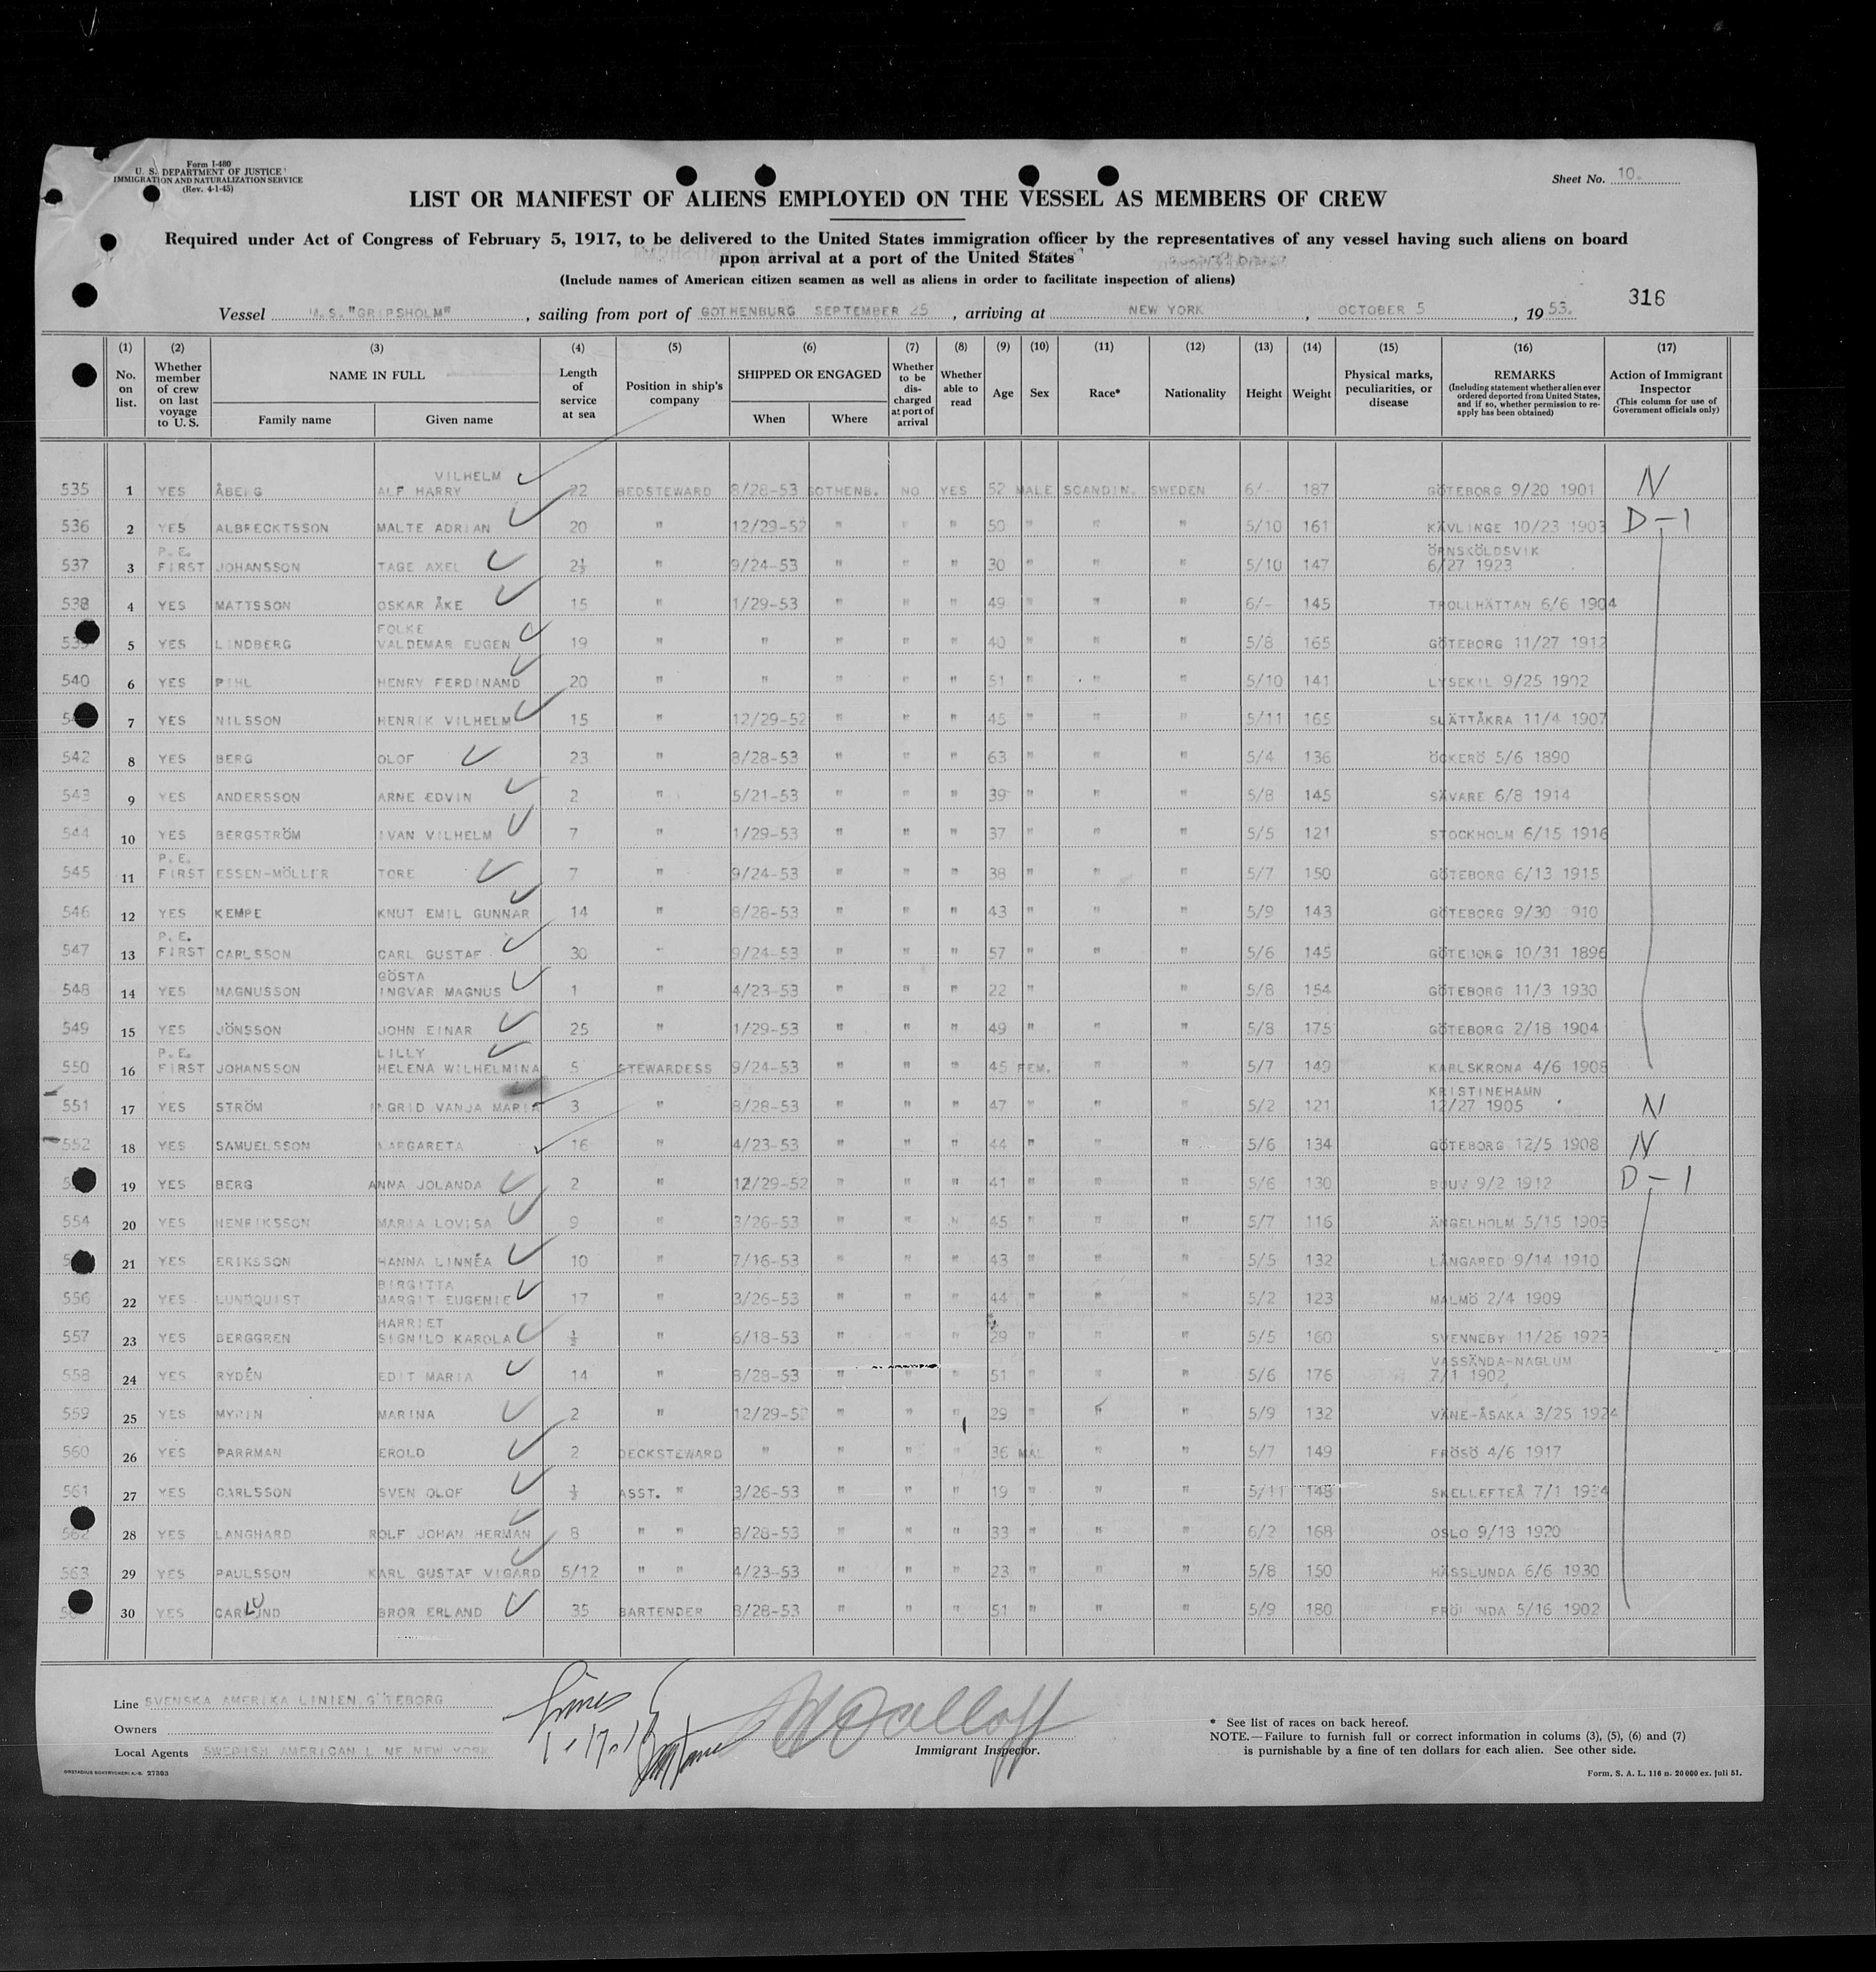 Form I-480
U. S. DEPARTMENT OF JUSTICE
IMMIGRATION AND NATURALIZATION SERVICE
(Rev. 4-1-45)
Sheet No. 10.
LIST OR MANIFEST OF ALIENS EMPLOYED ON THE VESSEL AS MEMBERS OF CREW
Required under Act of Congress of February 5, 1917, to be delivered to the United States immigration officer by the representatives of any vessel having such aliens on board
upon arrival at a port of the United States
(Include names of American citizen seamen as well as aliens in order to facilitate inspection of aliens)
316
Vessel M.S."GRIPSHOLM", sailing from port of GOTHENBURG SEPTEMBER 25, arriving at NEW YORK, OCTOBER 5, 1953.
(1) No. on list. (2) Whether member of crew on last voyage to U. S. (3) NAME IN FULL Family name Given name (4) Length of service at sea (5) Position in ship's company (6) SHIPPED OR ENGAGED When Where (7) Whether to be discharged at port of arrival (8) Whether able to read (9) Age (10) Sex (11) Race* (12) Nationality (13) Height (14) Weight (15) Physical marks, peculiarities, or disease (16) REMARKS (Including statement whether alien ever ordered deported from United States, and if so, whether permission to re-apply has been obtained) (17) Action of Immigrant Inspector (This column for use of Government officials only)
VILHELM
535 1 YES ÅBERG ALF HARRY 22 BEDSTEWARD 8/28-53 GOTHENB. NO YES 52 MALE SCANDIN. SWEDEN 6/- 187 GÖTEBORG 9/20 1901 N
536 2 YES ALBRECKTSSON MALTE ADRIAN 20 " 12/29-52 " " " 50 " " " 5/10 161 KÄVLINGE 10/23 1903 D-1
P.E. ÖRNSKÖLDSVIK
537 3 FIRST JOHANSSON TAGE AXEL 2½ " 9/24-53 " " " 30 " " " 5/10 147 6/27 1923
538 4 YES MATTSSON OSKAR ÅKE 15 " 1/29-53 " " " 49 " " " 6/- 145 TROLLHÄTTAN 6/6 1904
FOLKE
5 YES LINDBERG VALDEMAR EUGEN 19 " " " " " 40 " " " 5/8 165 GÖTEBORG 11/27 1912
540 6 YES PIHL HENRY FERDINAND 20 " " " " " 51 " " " 5/10 141 LYSEKIL 9/25 1902
7 YES NILSSON HENRIK VILHELM 15 " 12/29-52 " " " 45 " " " 5/11 165 SLÄTTÅKRA 11/4 1907
542 8 YES BERG OLOF 23 " 8/28-53 " " " 63 " " " 5/4 136 ÖCKERÖ 5/6 1890
543 9 YES ANDERSSON ARNE EDVIN 2 " 5/21-53 " " " 39 " " " 5/8 145 SÄVARE 6/8 1914
544 10 YES BERGSTRÖM IVAN VILHELM 7 " 1/29-53 " " " 37 " " " 5/5 121 STOCKHOLM 6/15 1916
P.E.
545 11 FIRST ESSEN-MÖLLER TORE 7 " 9/24-53 " " " 38 " " " 5/7 150 GÖTEBORG 6/13 1915
546 12 YES KEMPE KNUT EMIL GUNNAR 14 " 8/28-53 " " " 43 " " " 5/9 143 GÖTEBORG 9/30 910
P.E.
547 13 FIRST CARLSSON CARL GUSTAF 30 " 9/24-53 " " " 57 " " " 5/6 145 GÖTEBORG 10/31 1896
GÖSTA
548 14 YES MAGNUSSON INGVAR MAGNUS 1 " 4/23-53 " " " 22 " " " 5/8 154 GÖTEBORG 11/3 1930
549 15 YES JÖNSSON JOHN EINAR 25 " 1/29-53 " " " 49 " " " 5/8 175 GÖTEBORG 2/18 1904
P.E. LILLY
550 16 FIRST JOHANSSON HELENA WILHELMINA 5 STEWARDESS 9/24-53 " " " 45 FEM. " " 5/7 149 KARLSKRONA 4/6 1908
KRISTINEHAMN
551 17 YES STRÖM INGRID VANJA MARIA 3 " 8/28-53 " " " 47 " " " 5/2 121 12/27 1905 N
552 18 YES SAMUELSSON MARGARETA 16 " 4/23-53 " " " 44 " " " 5/6 134 GÖTEBORG 12/5 1908 N
19 YES BERG ANNA JOLANDA 2 " 12/29-52 " " " 41 " " " 5/6 130 BJUV 9/2 1912 D-1
554 20 YES HENRIKSSON MARIA LOVISA 9 " 3/26-53 " " " 45 " " " 5/7 116 ÄNGELHOLM 5/15 1908
21 YES ERIKSSON HANNA LINNÉA 10 " 7/16-53 " " " 43 " " " 5/5 132 LÅNGARED 9/14 1910
BIRGITTA
556 22 YES LUNDQUIST MARGIT EUGENIE 17 " 3/26-53 " " " 44 " " " 5/2 123 MALMÖ 2/4 1909
HARRIET
557 23 YES BERGGREN SIGNILD KAROLA ½ " 6/18-53 " " " 29 " " " 5/5 160 SVENNEBY 11/26 1923
VASSÄNDA-NAGLUM
558 24 YES RYDÉN EDIT MARIA 14 " 8/28-53 " " " 51 " " " 5/6 176 7/1 1902
559 25 YES MYRIN MARINA 2 " 12/29-52 " " " 29 " " " 5/9 132 VÄNE-ÅSAKA 3/25 1924
560 26 YES PARRMAN EROLD 2 DECKSTEWARD " " " " 36 MAL " " 5/7 149 FRÖSÖ 4/6 1917
561 27 YES CARLSSON SVEN OLOF ½ ASST. " 3/26-53 " " " 19 " " " 5/11 148 SKELLEFTEÅ 7/1 1934
562 28 YES LANGHARD ROLF JOHAN HERMAN 8 " " 8/28-53 " " " 33 " " " 6/2 168 OSLO 9/18 1920
563 29 YES PAULSSON KARL GUSTAF VIGARD 5/12 " " 4/23-53 " " " 23 " " " 5/8 150 HÄSSLUNDA 6/6 1930
30 YES CARLUND BROR ERLAND 35 BARTENDER 8/28-53 " " " 51 " " " 5/9 180 FRÖLUNDA 5/16 1902
Line SVENSKA AMERIKA LINIEN, GÖTEBORG
Owners
Local Agents SWEDISH AMERICAN LINE, NEW YORK
Immigrant Inspector.
* See list of races on back hereof.
NOTE.—Failure to furnish full or correct information in colums (3), (5), (6) and (7)
is punishable by a fine of ten dollars for each alien. See other side.
ORSTADIUS BOKTRYCKERI A.-B. 27303
Form. S. A. L. 116 n. 20 000 ex. Juli 51.